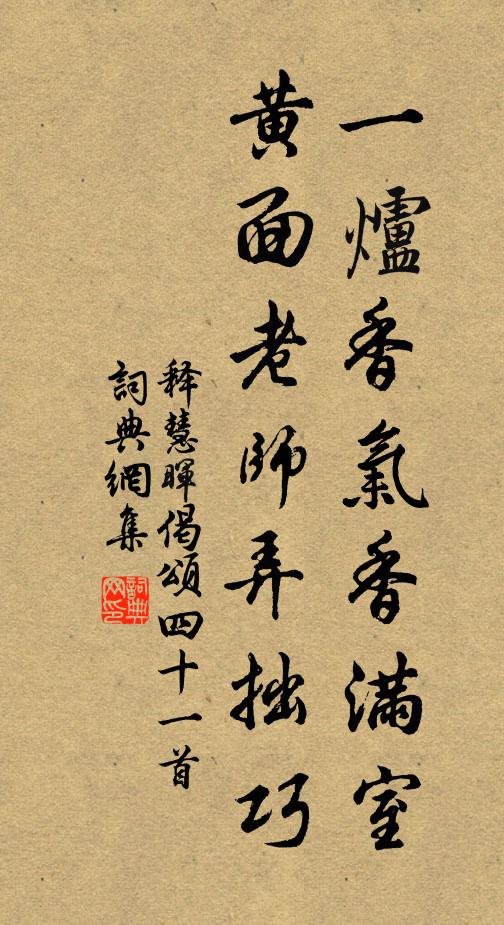 一爐香氣香滿室
黃面老師弄拙巧
釋慧暉偈頌四十一首
詞典網集
詞典網印